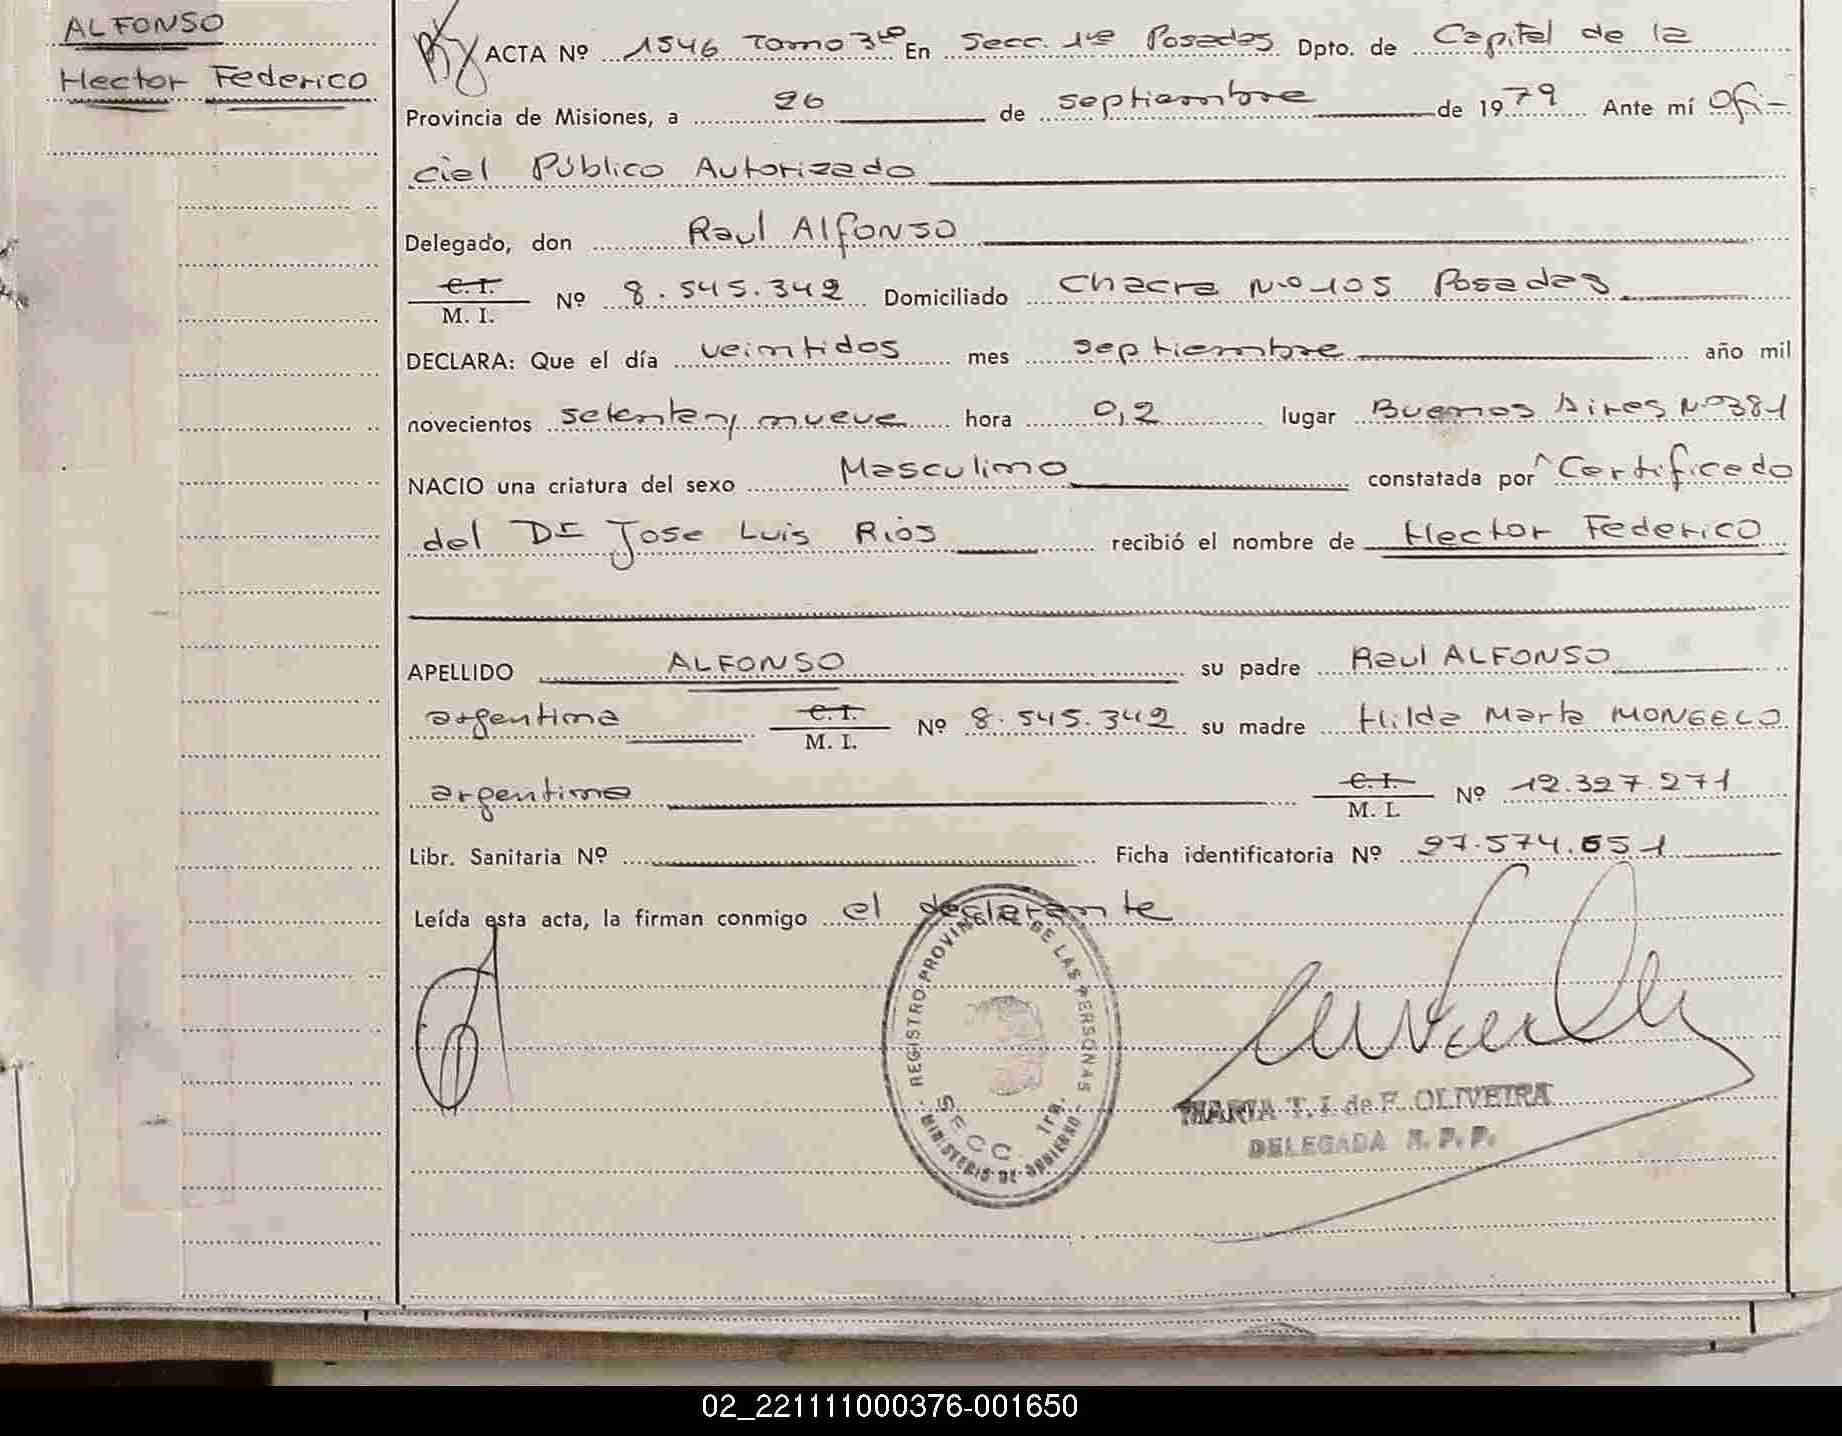 ALFONSO
Hector Federico
ACTA Nº 1546 Tomo 3ro En Secc. 1ra Posadas Dpto. de Capital de la
Provincia de Misiones, a 26 de septiembre de 1979 Ante mí Ofi-
cial Público Autorizado
Delegado, don Raul Alfonso
C. I.
M. I. Nº 8.545.342 Domiciliado Chacra Nº 105 Posadas
DECLARA: Que el día veintidos mes septiembre año mil
novecientos setenta y nueve hora 0,2 lugar Buenos Aires Nº 381
NACIO una criatura del sexo Masculino constatada por Certificado
del Dr Jose Luis Rios recibió el nombre de Hector Federico
APELLIDO ALFONSO su padre Raul ALFONSO
argentina C. I.
M. I. Nº 8.545.342 su madre Hilda Marta MONGELO
argentina C. I.
M. I. Nº 12.327.271
Libr. Sanitaria Nº Ficha identificatoria Nº 27.574.651
Leída esta acta, la firman conmigo el declarante
REGISTRO PROVINCIAL DE LAS PERSONAS
SECC. 1ra.
MINISTERIO DE GOBIERNO
MARIA T. I. de F. OLIVEIRA
DELEGADA R. P. P.
02_221111000376-001650